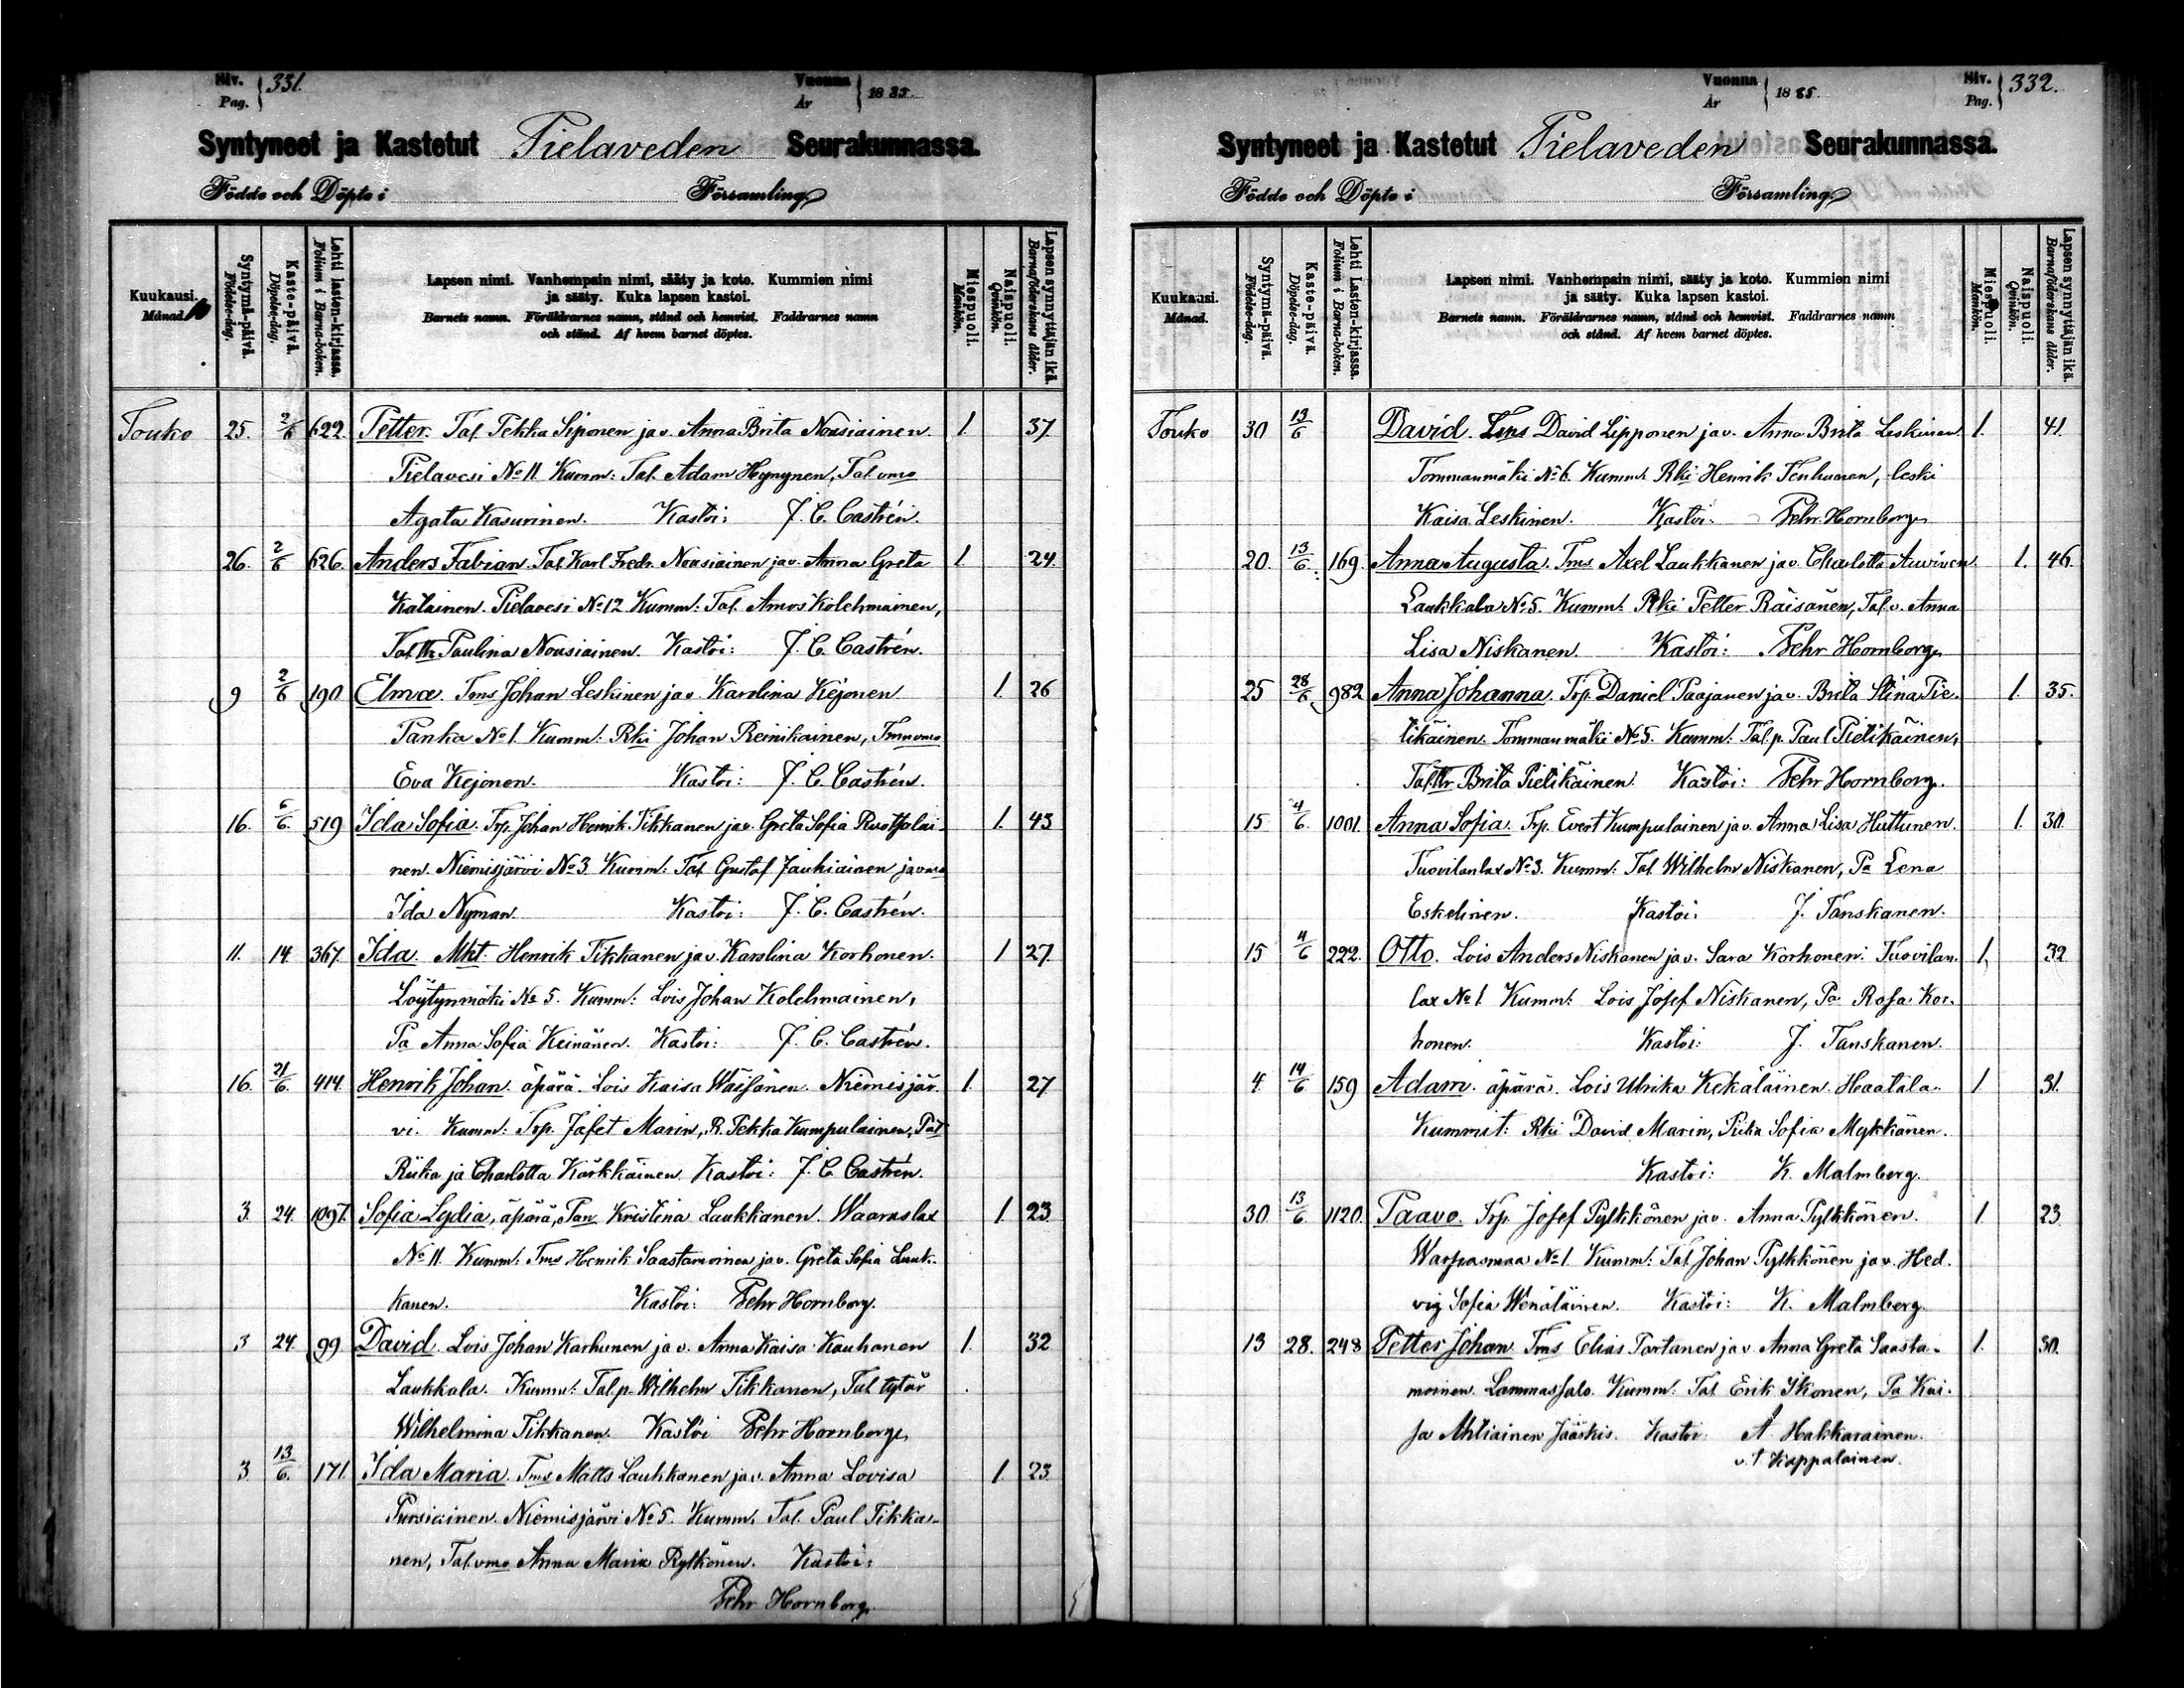 Siv.
Pag. 331.
Vuonna
År 1885.
Syntyneet ja Kastetut Pielaveden Seurakunnassa.
Födde och Döpte i Församling.
Kuukausi.
Månad.
Syntymä-päivä.
Födelse-dag.
Kaste-päivä.
Döpelse-dag.
Lehti lasten-kirjassa.
Folium i Barna-boken.
Lapsen nimi. Vanhempain nimi, sääty ja koto. Kummien nimi
ja sääty. Kuka lapsen kastoi.
Barnets namn. Föräldrarnes namn, stånd och hemvist. Faddrarnes namn
och stånd. Af hvem barnet döptes.
Miespuoli.
Mankön.
Naispuoli.
Qvinkön.
Lapsen synnyttäjän ikä.
Barnaföderskans ålder.
Touko 25. 2/6 622. Petter. Tal. Pekka Siponen ja v. Anna Brita Nousiainen. 1. 37.
Pielavesi No 11 Kumm: Tal. Adam Hynynen, Tal. vmo
Agata Kasurinen. Kastoi: J. C. Castrén.
26. 2/6 626. Anders Fabian. Tal. Karl Fredr. Nousiainen ja v. Anna Greta 1. 24.
Kalainen. Pielavesi No 12 Kumm: Tal. Amos Kolehmainen,
Tal. ttr Paulina Nousiainen. Kastoi: J. C. Castrén.
9 2/6 190. Elma. Tms Johan Leskinen ja v. Karolina Kejonen 1. 26
Panka No 1. Kumm: Rki Johan Reinikainen, Tmn vmo
Eva Kejonen. Kastoi: J. C. Castrén.
16. 5/6. 519 Ida Sofia. Trp. Johan Henrik Tikkanen ja v. Greta Sofia Ruotsalai- 1. 43
nen. Niemisjärvi No 3 Kumm: Tal. Gustaf Jauhiainen ja vmo
Ida Nyman. Kastoi: J. C. Castrén.
11. 14. 367. Ida. Mkt. Henrik Tikkanen ja v. Karolina Korhonen. 1 27.
Löytynmäki No 5. Kumm: Lois Johan Kolehmainen,
Pa Anna Sofia Keinänen. Kastoi: J. C. Castrén.
16. 21/6. 414. Henrik Johan. äpärä. Lois Kaisa Wäisänen. Niemisjär- 1. 27
vi. Kumm: Trp. Jafet Marin, R. Pekka Kumpulainen, Pat
Riika ja Charlotta Kärkkäinen. Kastoi: J. C. Castrén.
3. 24. 1097. Sofia Lydia, äpärä, Pan Kristina Laukkanen. Waaraslax 1. 23
No 11. Kumm: Tms Henrik Saastamoinen ja v. Greta Sofia Lauk-
kanen. Kastoi: Fehr Hornborg.
3 24. 99 David. Lois Johan Karhunen ja v. Anna Kaisa Kauhanen 1. 32
Laukkala. Kumm: Tal. p. Wilhelm Tikkanen, Tal tytär
Wilhelmina Tikkanen. Kastoi Fehr Hornborg.
3. 13/6. 171. Ida Maria. Tms Matts Laukkanen ja v. Anna Lovisa 1. 23
Pursiainen. Niemisjärvi No 5. Kumm: Tal. Paul Tikka-
nen, Tal. vmo Anna Maria Rytkönen. Kastoi:
Fehr Hornborg.
Vuonna
År 1885.
Siv.
Pag. 332.
Syntyneet ja Kastetut Pielaveden Seurakunnassa.
Födde och Döpte i Församling.
Kuukausi.
Månad.
Syntymä-päivä.
Födelse-dag.
Kaste-päivä.
Döpelse-dag.
Lehti Lasten-kirjassa.
Folium i Barna-boken.
Lapsen nimi. Vanhempain nimi, sääty ja koto. Kummien nimi
ja sääty. Kuka lapsen kastoi.
Barnets namn. Föräldrarnes namn, stånd och hemvist. Faddrarnes namn
och stånd. Af hvem barnet döptes.
Miespuoli.
Mankön.
Naispuoli.
Qvinkön.
Lapsen synnyttäjän ikä.
Barnaföderskans ålder.
Touko 30 13/6 David. Tms David Lipponen ja v. Anna Brita Leskinen 1. 41.
Tommanmäki No 6. Kumm: Rki Henrik Tenhunen, leski
Kaisa Leskinen. Kastoi: Fehr Hornborg.
20. 13/6. 169. Anna Augusta. Tms Axel Laukkanen ja v. Charlotta Auvinen. 1. 46.
Laukkala No 5. Kumm: Rki Petter Räisänen, Tal. v. Anna
Lisa Niskanen. Kastoi: Fehr Hornborg.
25 28/6 982 Anna Johanna. Trp. Daniel Paajanen ja v. Brita Stina Pie- 1. 35.
tikäinen. Tommanmäki No 5. Kumm: Tal. p. Paul Pietikäinen,
Tal. ttr Brita Pietikäinen. Kastoi: Fehr Hornborg.
15 4/6. 1001. Anna Sofia. Trp. Evert Kumpulainen ja v. Anna Lisa Huttunen. 1. 30.
Tuovilanlax No 3. Kumm: Tal. Wilhelm Niskanen, Pa Lena
Eskelinen. Kastoi: J. Tanskanen.
15 4/6 222. Otto. Lois Anders Niskanen ja v. Sara Korhonen. Tuovilan- 1. 32
lax No 1. Kumm: Lois Josef Niskanen, Pa Rosa Kor-
honen. Kastoi: J. Tanskanen.
4. 14/6 159 Adam. äpärä. Lois Ulrika Kekäläinen. Haatala. 1 31.
Kummit: Rki David Marin, Piika Sofia Mykkänen.
Kastoi: K. Malmberg.
30. 13/6 1120. Paavo. Trp. Josef Pylkkönen ja v. Anna Pylkkönen. 1. 23.
Warpasmaa No 1. Kumm: Tal. Johan Pylkkönen ja v. Hed-
vig Sofia Wenäläinen. Kastoi: K. Malmberg.
13 28. 248 Petter Johan. Tms Elias Partanen ja v. Anna Greta Saasta- 1. 30.
moinen. Lammassalo. Kumm: Tal. Erik Ikonen, Pa Kai-
sa Ahtiainen Jääskis. Kastoi A. Hakkarainen.
v. t. Kappalainen.